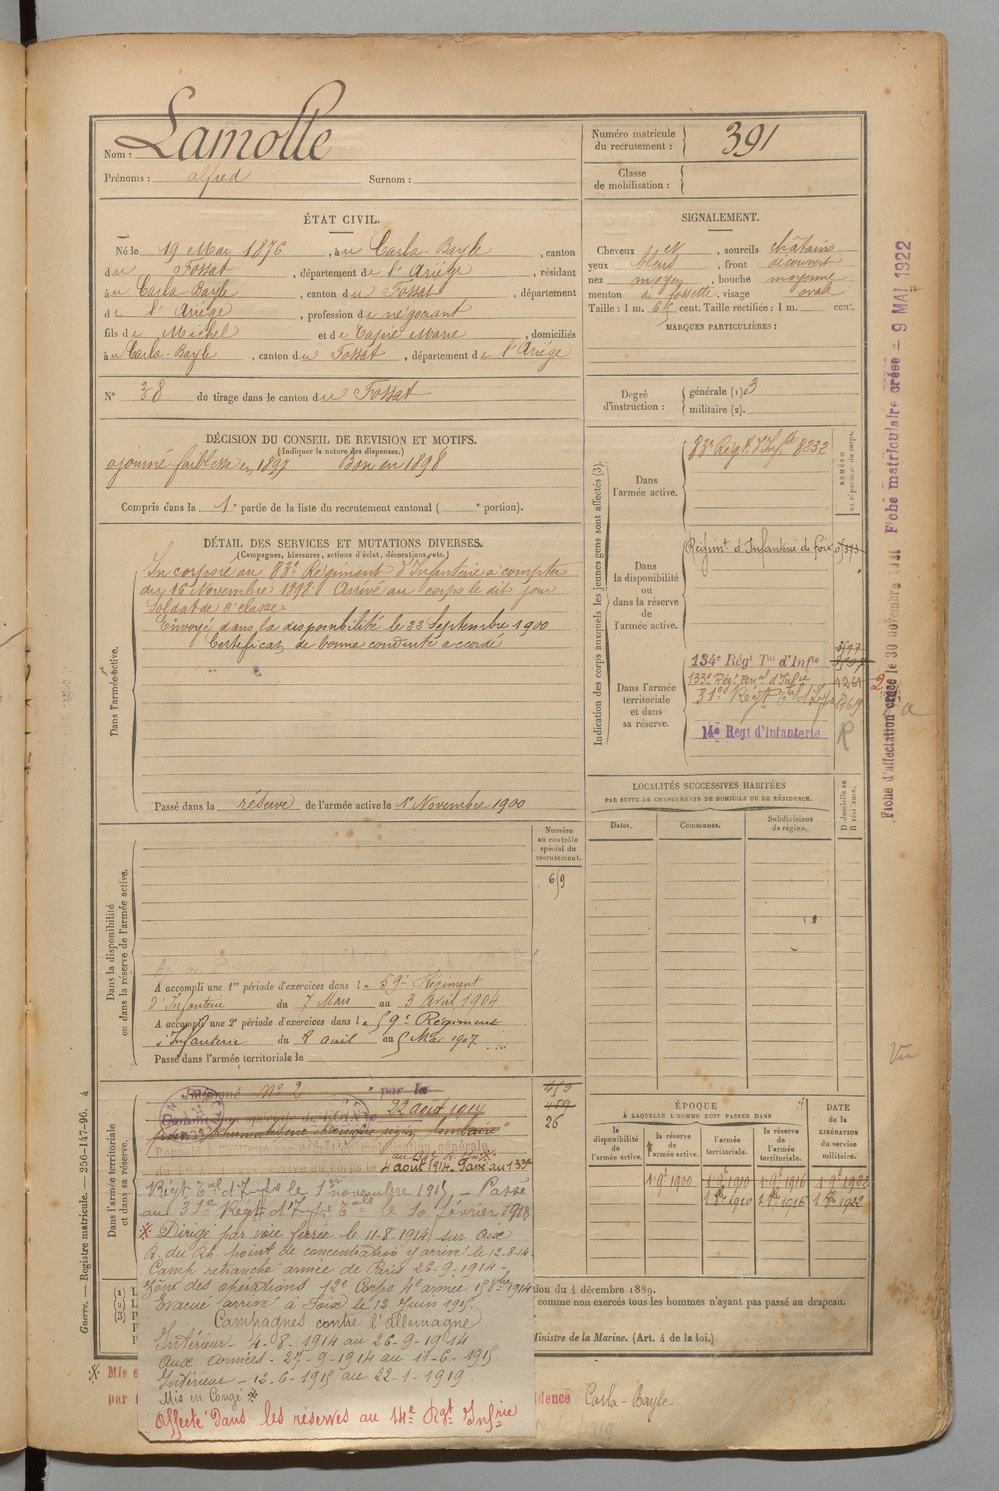 Nom : Lamotte
Prénoms : alfred Surnom :
Numéro matricule du recrutement : 391
Classe de mobilisation :
ÉTAT CIVIL.
Né le 19 Mai 1876, à u Carla-Bayle, canton
du Fossat, département de l'Ariège, résidant
à u Carla-Bayle, canton du Fossat, département
de l'Ariège, profession de négociant
fils de Michel et de Marie, domiciliés
à u Carla-Bayle, canton du Fossat, département de l'Ariège
N° 38 de tirage dans le canton du Fossat
SIGNALEMENT.
Cheveux et, sourcils châtains
yeux bleus, front découvert
nez moyen, bouche moyenne
menton à fossette, visage oval
Taille : 1 m. 65 cent. Taille rectifiée : 1 m. cent.
MARQUES PARTICULIÈRES :
Degré d'instruction : générale (1) 3
militaire (2).
DÉCISION DU CONSEIL DE REVISION ET MOTIFS.
(Indiquer la nature des dispenses.)
ajourné faiblesse en 1897 Bon en 1898
Compris dans la 1e partie de la liste du recrutement cantonal ( e portion).
DÉTAIL DES SERVICES ET MUTATIONS DIVERSES.
(Campagnes, blessures, actions d'éclat, décorations, etc.)
Dans l'armée active.
Incorporé au 83e Régiment d'Infanterie à compter
du 16 Novembre 1898. Arrivé au corps le dit jour
Soldat de 2e classe
Envoyé dans la disponibilité le 22 Septembre 1900
Certificat de bonne conduite accordé
Passé dans la réserve de l'armée active le 1er Novembre 1900
Indication des corps auxquels les jeunes gens sont affectés (3).
NUMÉRO au répertoire du corps.
Dans l'armée active.
83e Régt d'Infie 8232
Dans la disponibilité ou dans la réserve de l'armée active.
Régimt d'Infanterie de Foix
Dans l'armée territoriale et dans sa réserve.
134e Régt Tal d'Infie
133e Régt Ter al d'Infie
31e Régt Tal d'Infie
14e Regt d'Infanterie R
LOCALITÉS SUCCESSIVES HABITÉES
PAR SUITE DE CHANGEMENTS DE DOMICILE OU DE RÉSIDENCE.
Dates. Communes. Subdivisions de région. D domicile ou R résidence.
Dans la disponibilité ou dans la réserve de l'armée active.
Numéro au contrôle spécial du recrutement.
619
A accompli une 1re période d'exercices dans le 59e Régiment
d'Infanterie du 7 Mars au 3 Avril 1904
A accompli une 2e période d'exercices dans le 59e Régiment
d'Infanterie du 8 avril au 5 Mai 1907
Passé dans l'armée territoriale le
Dans l'armée territoriale et dans sa réserve.
Réformé N° 2 par la
Commission spéciale de
22 août 1914
459
26
4 août 1914. Passé au 133e
Régt Tal d'Infie le 1er novembre 1915 - Passé
au 31e Régt d'Infie Tale le 10 février 1918
※ Dirigé par voie ferrée le 11-8-1914 sur Aix
B. du Rh. point de concentration y arrivé le 12.8.14
Camp retranché armée de Paris 26-9-1914 -
Zône des opérations 12e Corps 4e armée 15 8bre 1914
Evacué arrivé à Foix le 12 Juin 1915
Campagnes contre l'Allemagne
Intérieur - 4-8-1914 au 26-9-1914
Aux Armées - 27-9-1914 au 11-6-1915
Intérieur - 12-6-1915 au 22-1-1919
Mis en Congé ※
Affecté dans les réserves au 14e Rgt Infrie
ÉPOQUE
À LAQUELLE L'HOMME DOIT PASSER DANS
la disponibilité de l'armée active. la réserve de l'armée active. l'armée territoriale. la réserve de l'armée territoriale.
DATE de la LIBÉRATION du service militaire.
1 9e 1900 1 9e 1910 1 9e 1916 1 9e 1922
1 8re 1910 1 8re 1916 1 8re 1922
(1) L
(2) L
(3) P
tion du 4 décembre 1889.
comme non exercés tous les hommes n'ayant pas passé au drapeau.
Ministre de la Marine. (Art. 4 de la loi.)
※ Mis e
par
idence Carla-Bayle
Guerre. — Registre matricule. — 256-147-96. 4
Fiche d'affectation créée le 30 novembre Fiche matriculaire créée - 9 MAI 1922
Vu